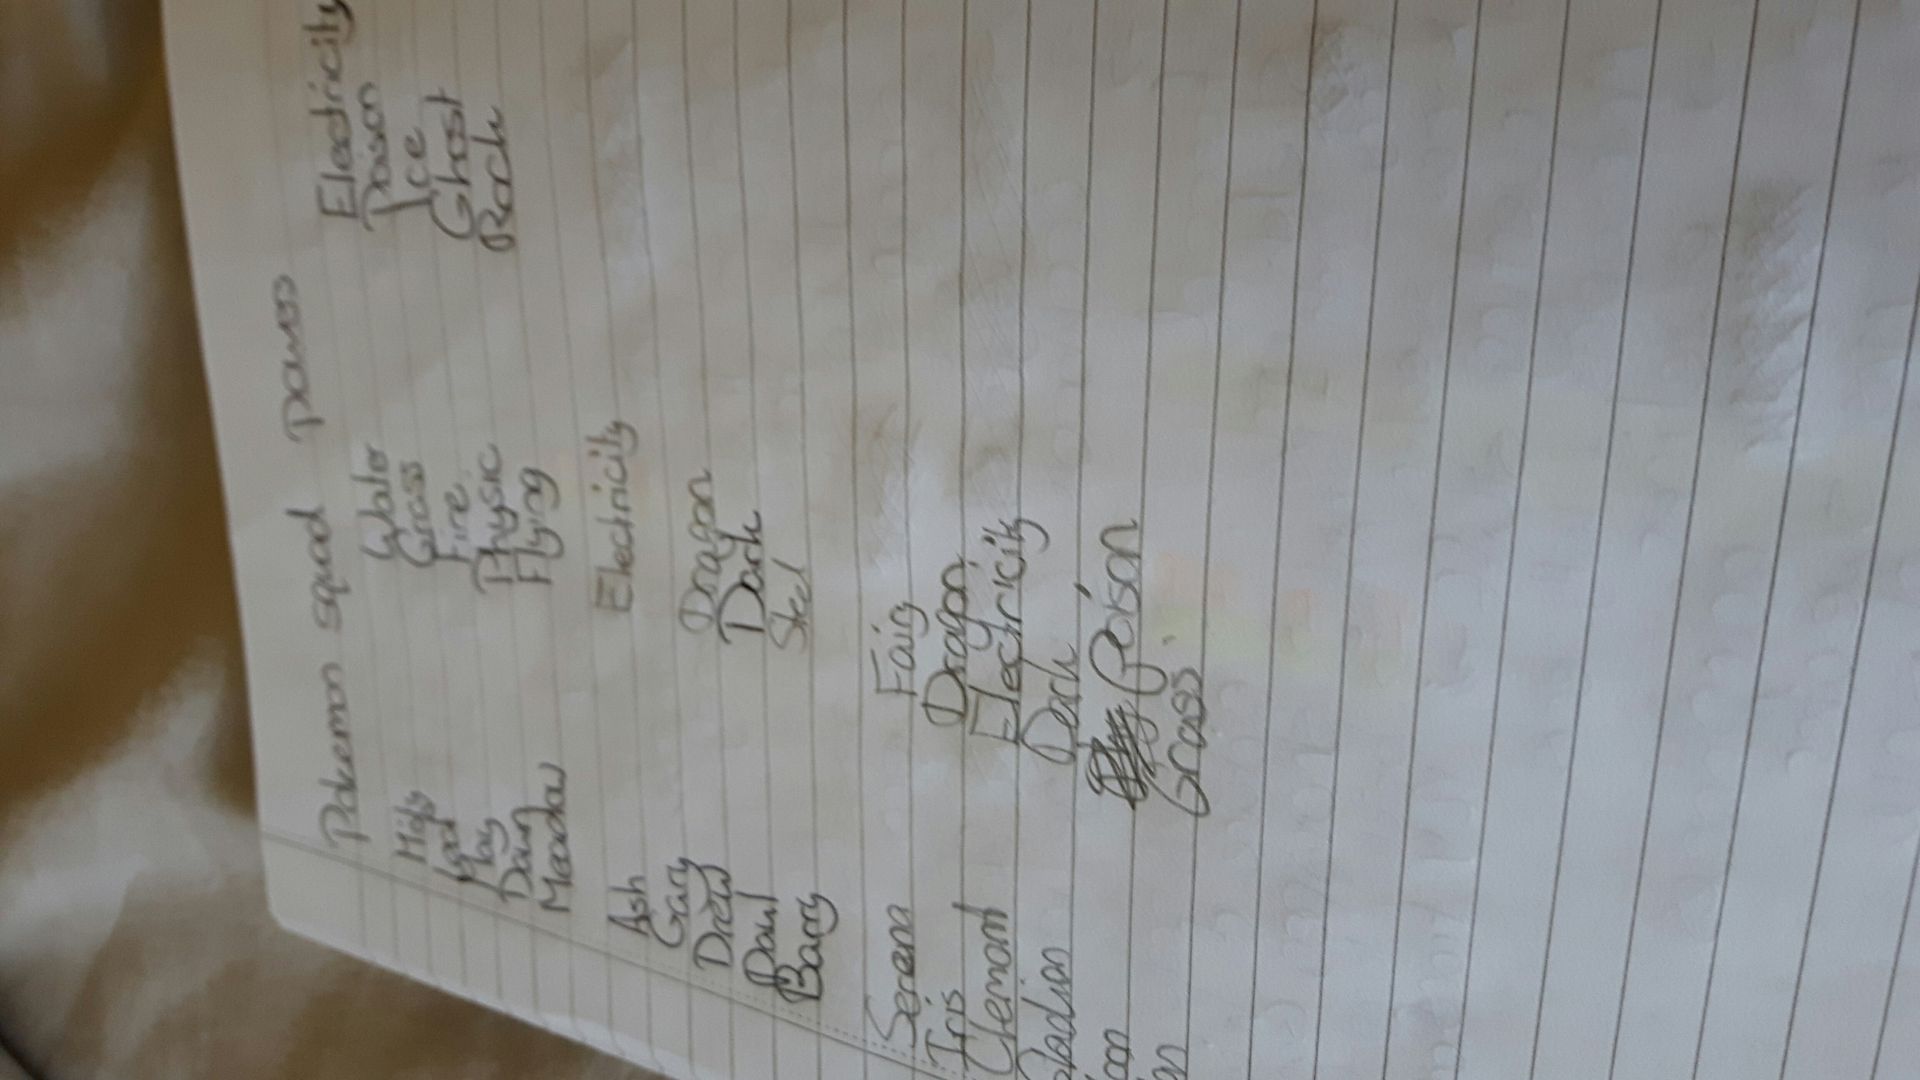 Pokemon squad paws
Misty Water Electricity
Grass Poison
May Fire Ice
Dawn Physic Ghost
Meadow Flying Rock
Ash Electricity
Gary
Drew Dragon
Paul Dark
Barry Steel
Serena Fairy
Iris Dragon
Clemont Electricity
Gladion Dark
Poison
Grass